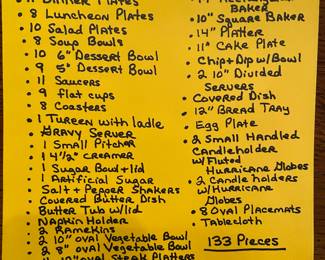 11 Dinner Plates
• 8 Luncheon Plates
• 10 Salad Plates
• 8 Soup Bowls
• 10 6" Dessert Bowl
• 9 5" Dessert Bowl
• 11 Saucers
• 9 flat cups
• 8 Coasters
• 1 Tureen with ladle
• Gravy Server
• 1 Small Pitcher
• 1 4 1/2" creamer
• 1 Sugar Bowl + lid
• 1 Artificial Sugar
• Salt + Pepper Shakers
• Covered Butter Dish
• Butter Tub w/lid
• Napkin Holder
• 2 Ramekins
• 2 10" oval Vegetable Bowl
• 2 8" oval Vegetable Bowl
10" oval Steak Platters
Rectangular
Baker
• 10" Square Baker
• 14" Platter
• 11" Cake Plate
• Chip + Dip w/Bowl
• 2 10" Divided
Servers
• Covered Dish
• 12" Bread Tray
• Egg Plate
• 2 Small Handled
Candleholder
w/Fluted
Hurricane Globes
• 2 Candle holders
w/Hurricane
Globes
• 8 Oval Placemats
• Tablecloth
133 Pieces